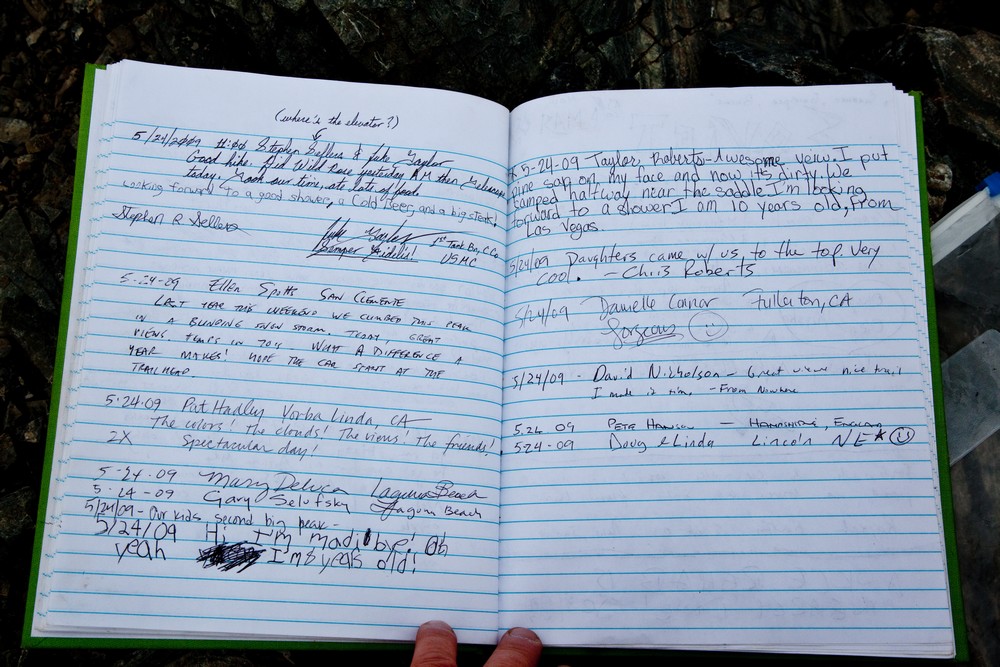 (where's the elevator?)
5/24/2009 Stephen Sellers & Jake Taylor
Good hike. Did Wild Rose yesterday A.M. then
today. Took our time, ate lots of food.
Looking forward to a good shower, a Cold Beer, and a big steak!
Stephen R Sellers
Jake Taylor 1st Tank Bn, C Co
Semper Fidelis! USMC
5-24-09 Ellen Spotts San Clemente
LAST YEAR THIS WEEKEND WE CLIMBED THIS PEAK
IN A BLINDING SNOW STORM. TODAY, GREAT
VIEWS. TEMPS IN 70'S WHAT A DIFFERENCE A
YEAR MAKES! HOPE THE CAR START AT THE
TRAILHEAD
5.24.09 Pat Hadley Yorba Linda, CA
The colors! The clouds! The views! The friends!
2X Spectacular day!
5-24-09 Mary DeLuca Laguna Beach
5-24-09 Gary Selofsky Laguna Beach
5/24/09 - Our kids second big peak -
5/24/09 Hi I'm madi bye! Oh
yeah I'm 8 years old!
5-24-09 Taylor Roberts-Awesome veiw. I put
pine sap on my face and now its dirty. We
camped halfway near the saddle I'm looking
forward to a shower I am 10 years old, From
Las Vegas.
5/24/09 Daughters came w/ us, to the top. Very
cool. - Chris Roberts
5/24/09 Danielle Connor Fullerton, CA
Gorgeous
5/24/09 - David Nicholson - Great views nice trail
I made it in time. - From Nowhere
5.24 09 PETE HANSON — HAMPSHIRE, ENGLAND
5-24-09 Doug & Linda Lincoln NE